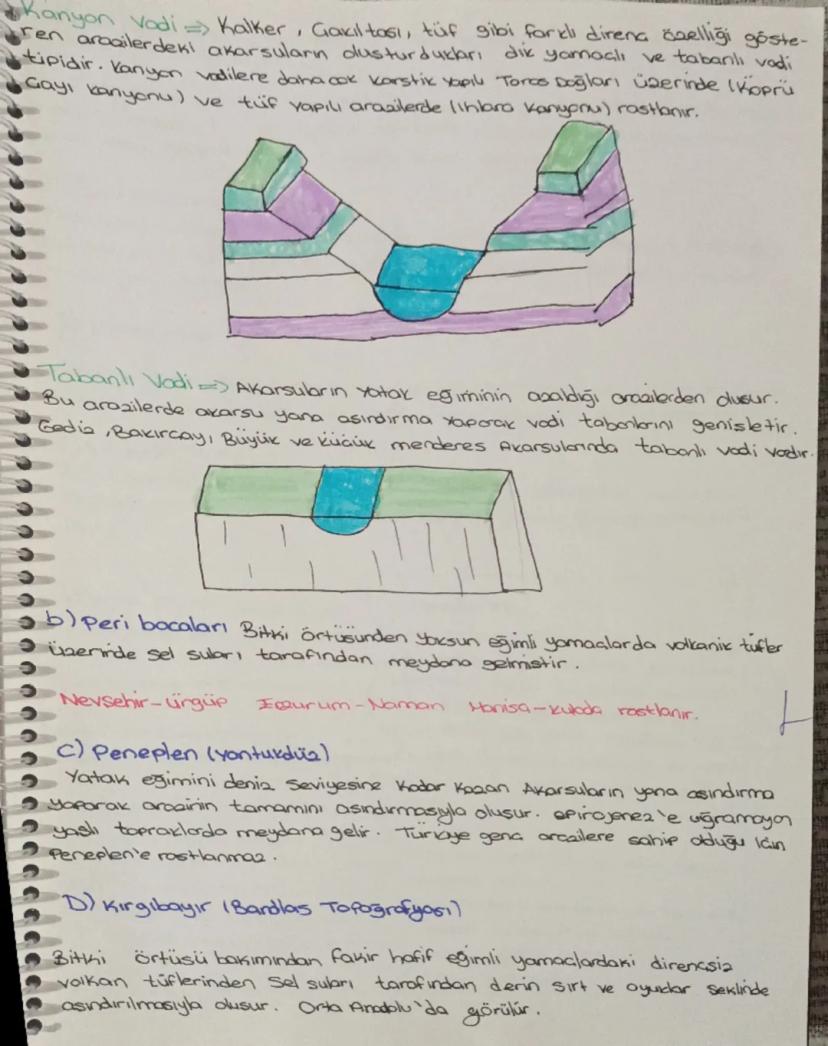 Kanyon Vadi => Kalker, Gakıltası, tüf gibi farklı direnc özelliği göste-
ren arazilerdeki akarsuların olusturdukları dik yamaclı ve tabanlı vadi
tipidir. Kanyon vadilere daha cok karstik yapılı Toros Dağları üzerinde (Köprü
Cayı kanyonu) ve tüf yapılı arazilerde (Ihlara Kanyonu) rastlanır.
Tabanlı Vadi => Akarsuların yatak eğiminin azaldığı arazilerden olusur.
Bu arazilerde akarsu yana asındırma yaparak vadi tabanlarını genisletir.
Gediz, Bakırcayı, Büyük ve Kücük menderes Akarsularında tabanlı vadi vadır.
b) Peri bacaları Bitki örtüsünden yoksun eğimli yamaclarda volkanik tüfler
üzerinde sel suları tarafından meydana gelmistir.
Nevsehir-Ürgüp Erzurum-Naman Manisa-Kulada rastlanır.
C) Peneplen (yontukdüz)
Yatak eğimini deniz seviyesine kadar kazan Akarsuların yana asındırma
yaparak arazinin tamamını asındırmasıyla olusur. epirojenez'e uğramayan
yaslı topraklarda meydana gelir. Türkiye genc arazilere sahip olduğu icin
Peneplen'e rastlanmaz.
D) Kırgıbayır (Bardlas Topoğrafyası)
Bitki örtüsü bakımından fakir hafif eğimli yamaclardaki direncsiz
volkan tüflerinden Sel suları tarafından derin sırt ve oyuklar seklinde
asındırılmasıyla olusur. Orta Anadolu'da görülür.